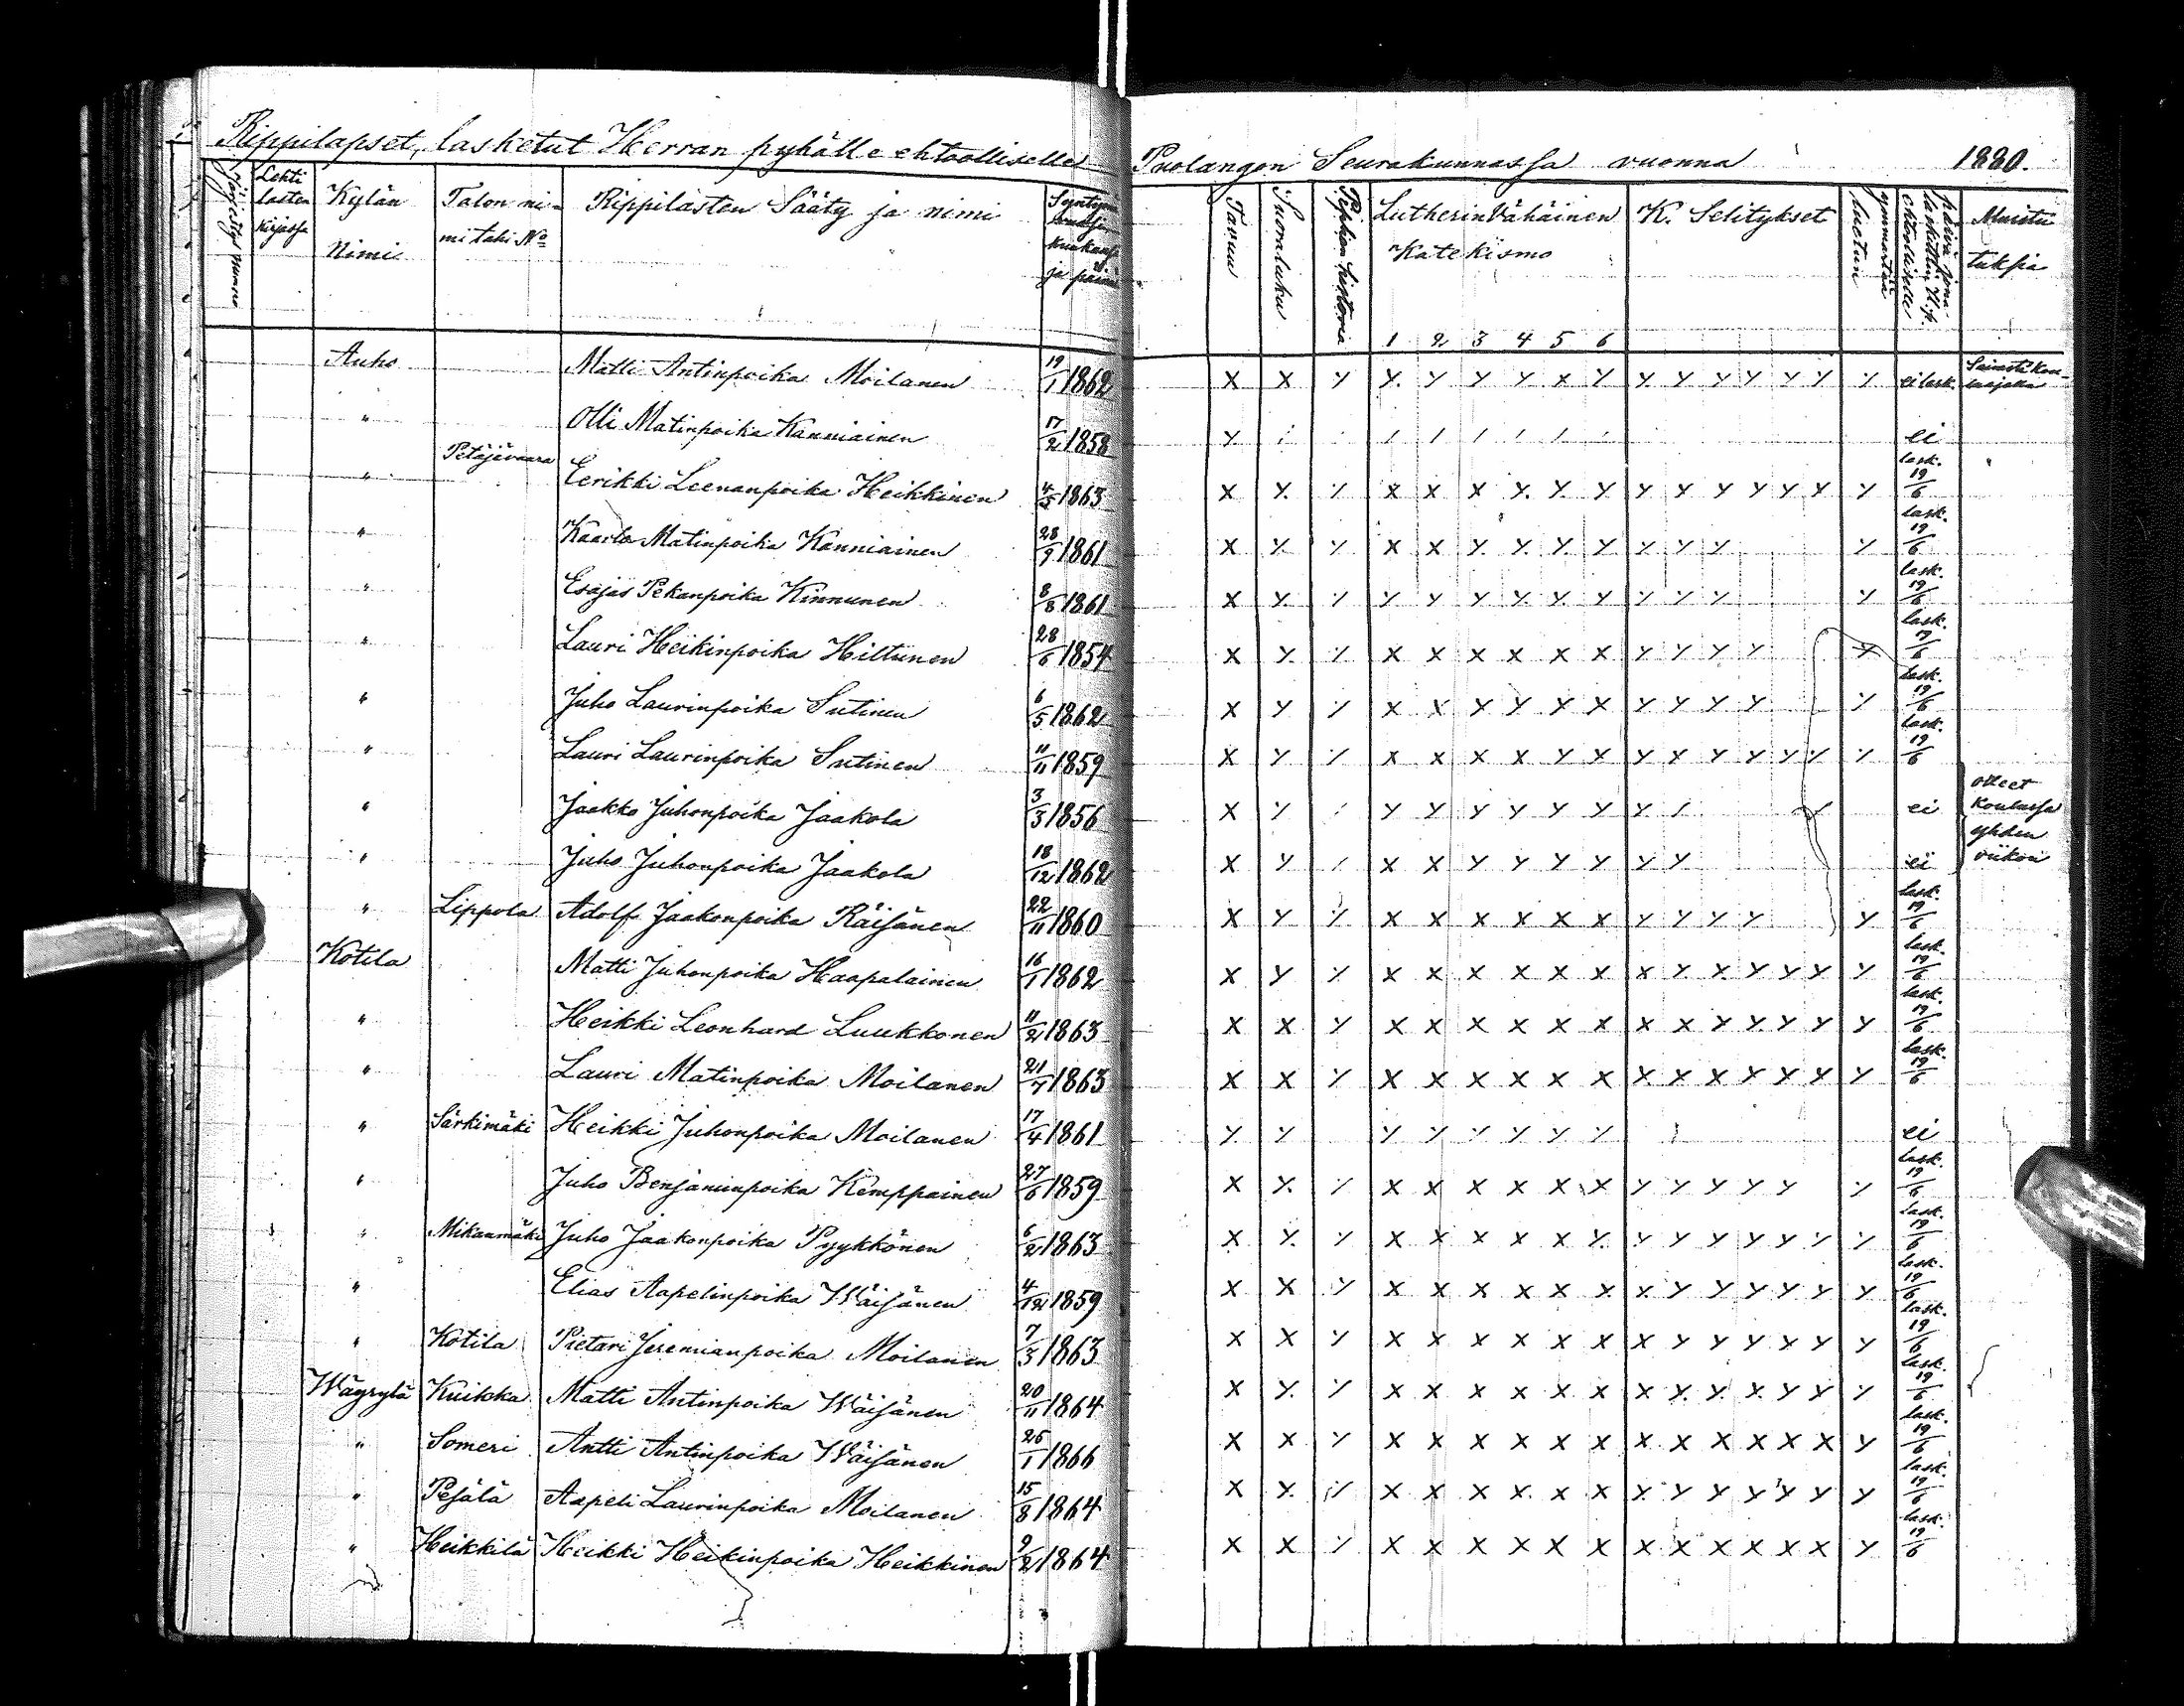 Rippilapset, lasketut Herran pyhälle ehtoolliselle Puolangon Seurakunnassa vuonna 1880.
Järjestys numero
Lehti lasten kirjassa
Kylän Nimi
Talon nimi taki No
Rippilasten Sääty ja nimi
ja päivä
Tavuu
Suoraluku
Piplian historia
Lutherin Vähäinen Katekismo
1 2 3 4 5 6
K. Selitykset
luetun ymmärtää
päivä jona laskettiin H. p. ehtoolliselle
Muistutuksia
Auho Matti Antinpoika Moilanen 19/1 1862 x x y y y y y x y y y y y y y y ei lask.
" Olli Matinpoika Kanniainen 17/2 1858 y ei
" Petäjävaara Eerikki Leenanpoika Heikkinen 4/5 1863 x y y x x x y y y y x y y y x y lask. 19/6
" Kaarlo Matinpoika Kanniainen 28/9 1861 x y y x x y y y y y y y y lask. 19/6
" Esajas Pekanpoika Kinnunen 8/8 1861 x y y y y y y y y y y y y lask. 19/6
" Lauri Heikinpoika Hiltunen 28/6 1854 x y y x x x x x x y y y y y lask. 19/6
" Juho Laurinpoika Sutinen 6/5 1862 x y y x x y y x x y y y y y lask. 19/6
" Lauri Laurinpoika Sutinen 11/11 1859 x y y x x x x y x y y y y y y y lask. 19/6
" Jaakko Juhonpoika Jaakola 3/3 1856 x y y y y y y y y ei
" Juho Juhonpoika Jaakola 18/12 1862 x y x x y y y y y y ei
olleet koulussa yhden viikon
" Lippola Adolf Jaakonpoika Räisänen 22/11 1860 x y y x x x x x x y y y y y lask. 19/6
Kotila Matti Juhonpoika Haapalainen 16/1 1862 x y y x x x x x x x y x y y y y lask. 19/6
" Heikki Leonhard Luukkonen 11/2 1863 x x y x x x x x x x x y y y y y lask. 19/6
" Lauri Matinpoika Moilanen 21/7 1863 x x y x x x x x x x x x x x y y lask. 19/6
" Särkimäki Heikki Juhonpoika Moilanen 17/4 1861 y y y y y y y y ei
" Juho Benjaminpoika Kemppainen 27/6 1859 x y y x x x x x x y y y y y y lask. 19/6
" Mikanmäki Juho Jaakonpoika Pyykkönen 6/2 1863 x y y x x x x x y y y y y y y y lask. 19/6
" Elias Aapelinpoika Wäisänen 4/12 1859 x x y x x x x x x x y y y y y y lask. 19/6
" Kotila Pietari Jeremianpoika Moilanen 7/3 1863 x x y x x x x x x x y y y y y y lask. 19/6
Wäyrylä Kuikka Matti Antinpoika Wäisänen 20/11 1864 x y y x x x x x x x y y x y y y lask. 19/6
" Someri Antti Antinpoika Wäisänen 25/1 1866 x x y x x x x x x x x x x x x y lask. 19/6
" Pesälä Aapeli Laurinpoika Moilanen 15/8 1864 x y y x x x x x x x y y y y y y lask. 19/6
" Heikkilä Heikki Heikinpoika Heikkinen 9/2 1864 x x y x x x x x x x x x x x x y lask. 19/6